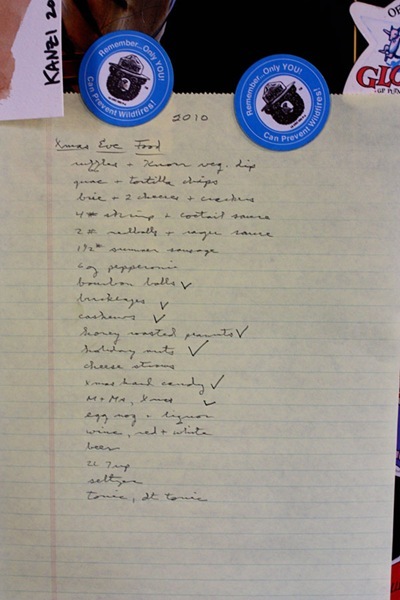 KANZI 20
Remember...Only YOU!
Can Prevent Wildfires!
Remember...Only YOU!
Can Prevent Wildfires!
GLO
2010
Xmas Eve Food
ruffles + Knorr veg. dip
guac + tortilla chips
brie + 2 cheeses + crackers
4# shrimp + coctail sauce
2# meatballs + sauce
1 1/2# summer sausage
6oz pepperoni
bourbon balls ✓
✓
cashews ✓
honey roasted peanuts ✓
holiday nuts ✓
cheese straws
xmas hard candy ✓
M+Ms, Xmas ✓
egg nog + liquor
wine, red + white
beer
2L 7up
seltzer
tonic, dt tonic